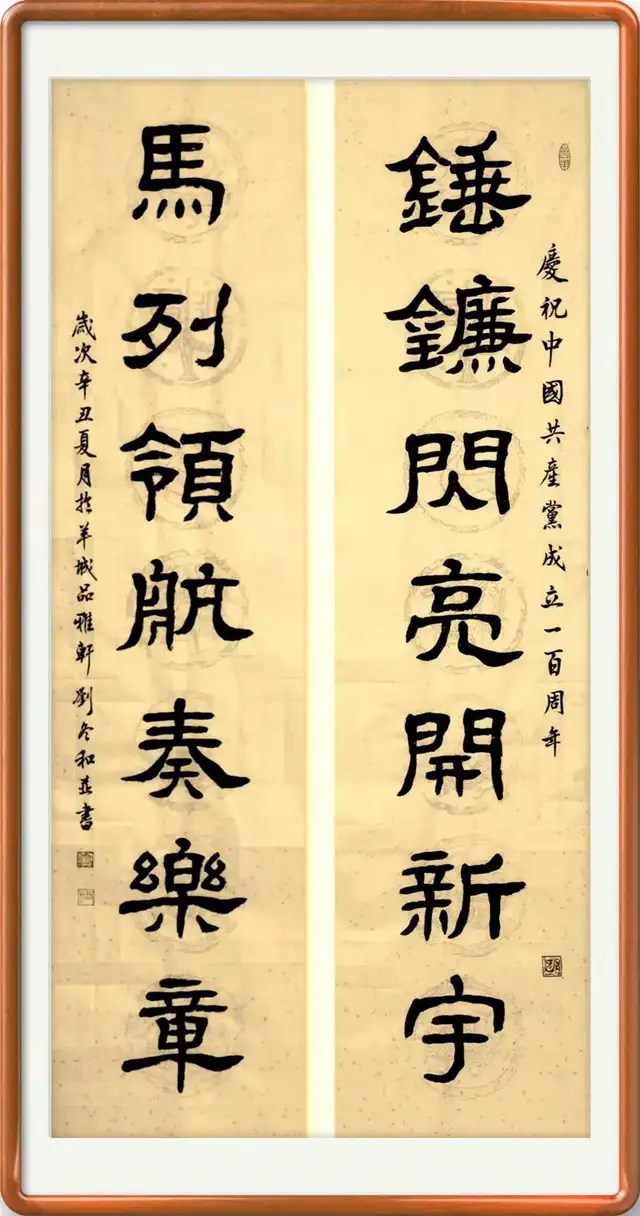 慶祝中國共產黨成立一百周年
錘鐮閃亮開新宇
馬列領航奏樂章
歲次辛丑夏月扵羊城品雅軒劉冬和並書